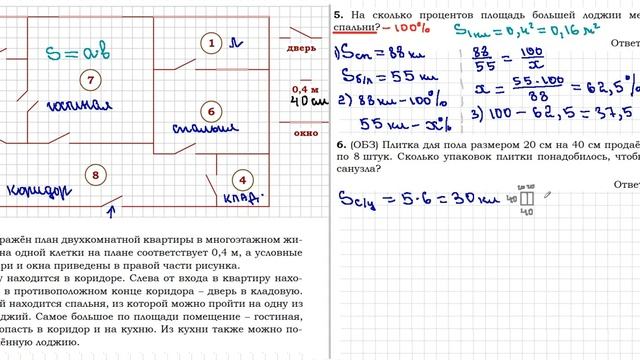 S = ab
1 л
дверь
0,4 м
40 см
окно
7
гостиная
6
спальня
8
коридор
4
клад.
ражён план двухкомнатной квартиры в многоэтажном жи-
на одной клетки на плане соответствует 0,4 м, а условные
ри и окна приведены в правой части рисунка.
у находится в коридоре. Слева от входа в квартиру нахо-
в противоположном конце коридора – дверь в кладовую.
й находится спальня, из которой можно пройти на одну из
джий. Самое большое по площади помещение – гостиная,
опасть в коридор и на кухню. Из кухни также можно по-
лённую лоджию.
5. На сколько процентов площадь большей лоджии ме
спальни? – 100% S1кл = 0,4² = 0,16 м²
Ответ
1) Sсп = 88 кл
Sб/л = 55 кл
2) 88 кл – 100%
55 кл – x%
88/55 = 100/x
x = 55·100/88 = 62,5%
3) 100 – 62,5 = 37,5
6. (ОБЗ) Плитка для пола размером 20 см на 40 см продаё
по 8 штук. Сколько упаковок плитки понадобилось, чтоб
санузла?
Ответ
Sс/у = 5·6 = 30 кл
20 20
40
40